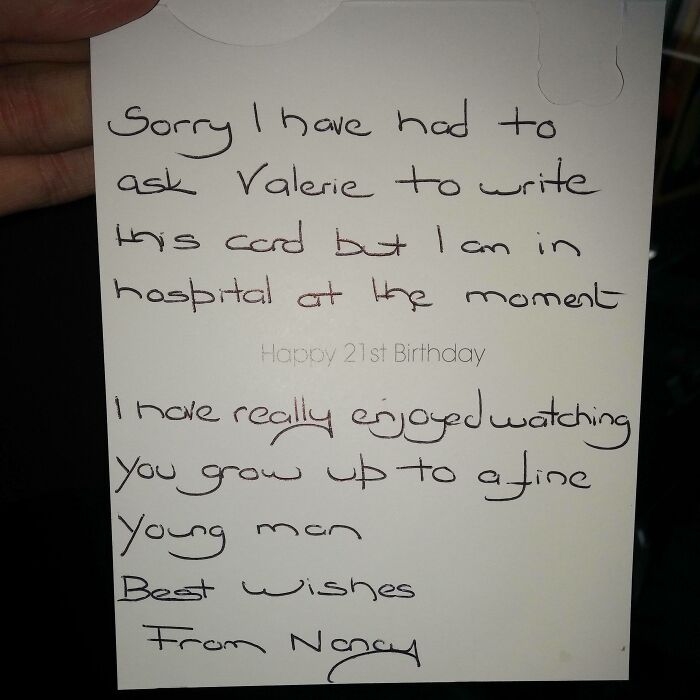 Sorry I have had to
ask Valerie to write
this card but I am in
hospital at the moment
Happy 21st Birthday
I have really enjoyed watching
you grow up to a fine
young man
Best wishes
From Nancy